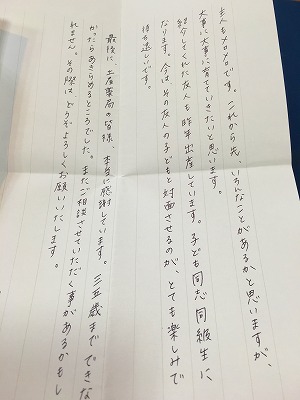 主人もメロメロです。これから先、いろんなことがあるかと思いますが、
大事に大事に育てていきたいと思います。
紹介してくれた友人も昨年出産しています。子ども同志同級生に
なります。今は、その友人の子どもと対面させるのが、とても楽しみで
待ち遠しいです。
最後に、土居薬局の皆様、本当に感謝しています。三五歳までできな
かったらあきらめるところでした。またご相談させていただく事があるかもし
れません。その際は、どうぞよろしくお願いいたします。